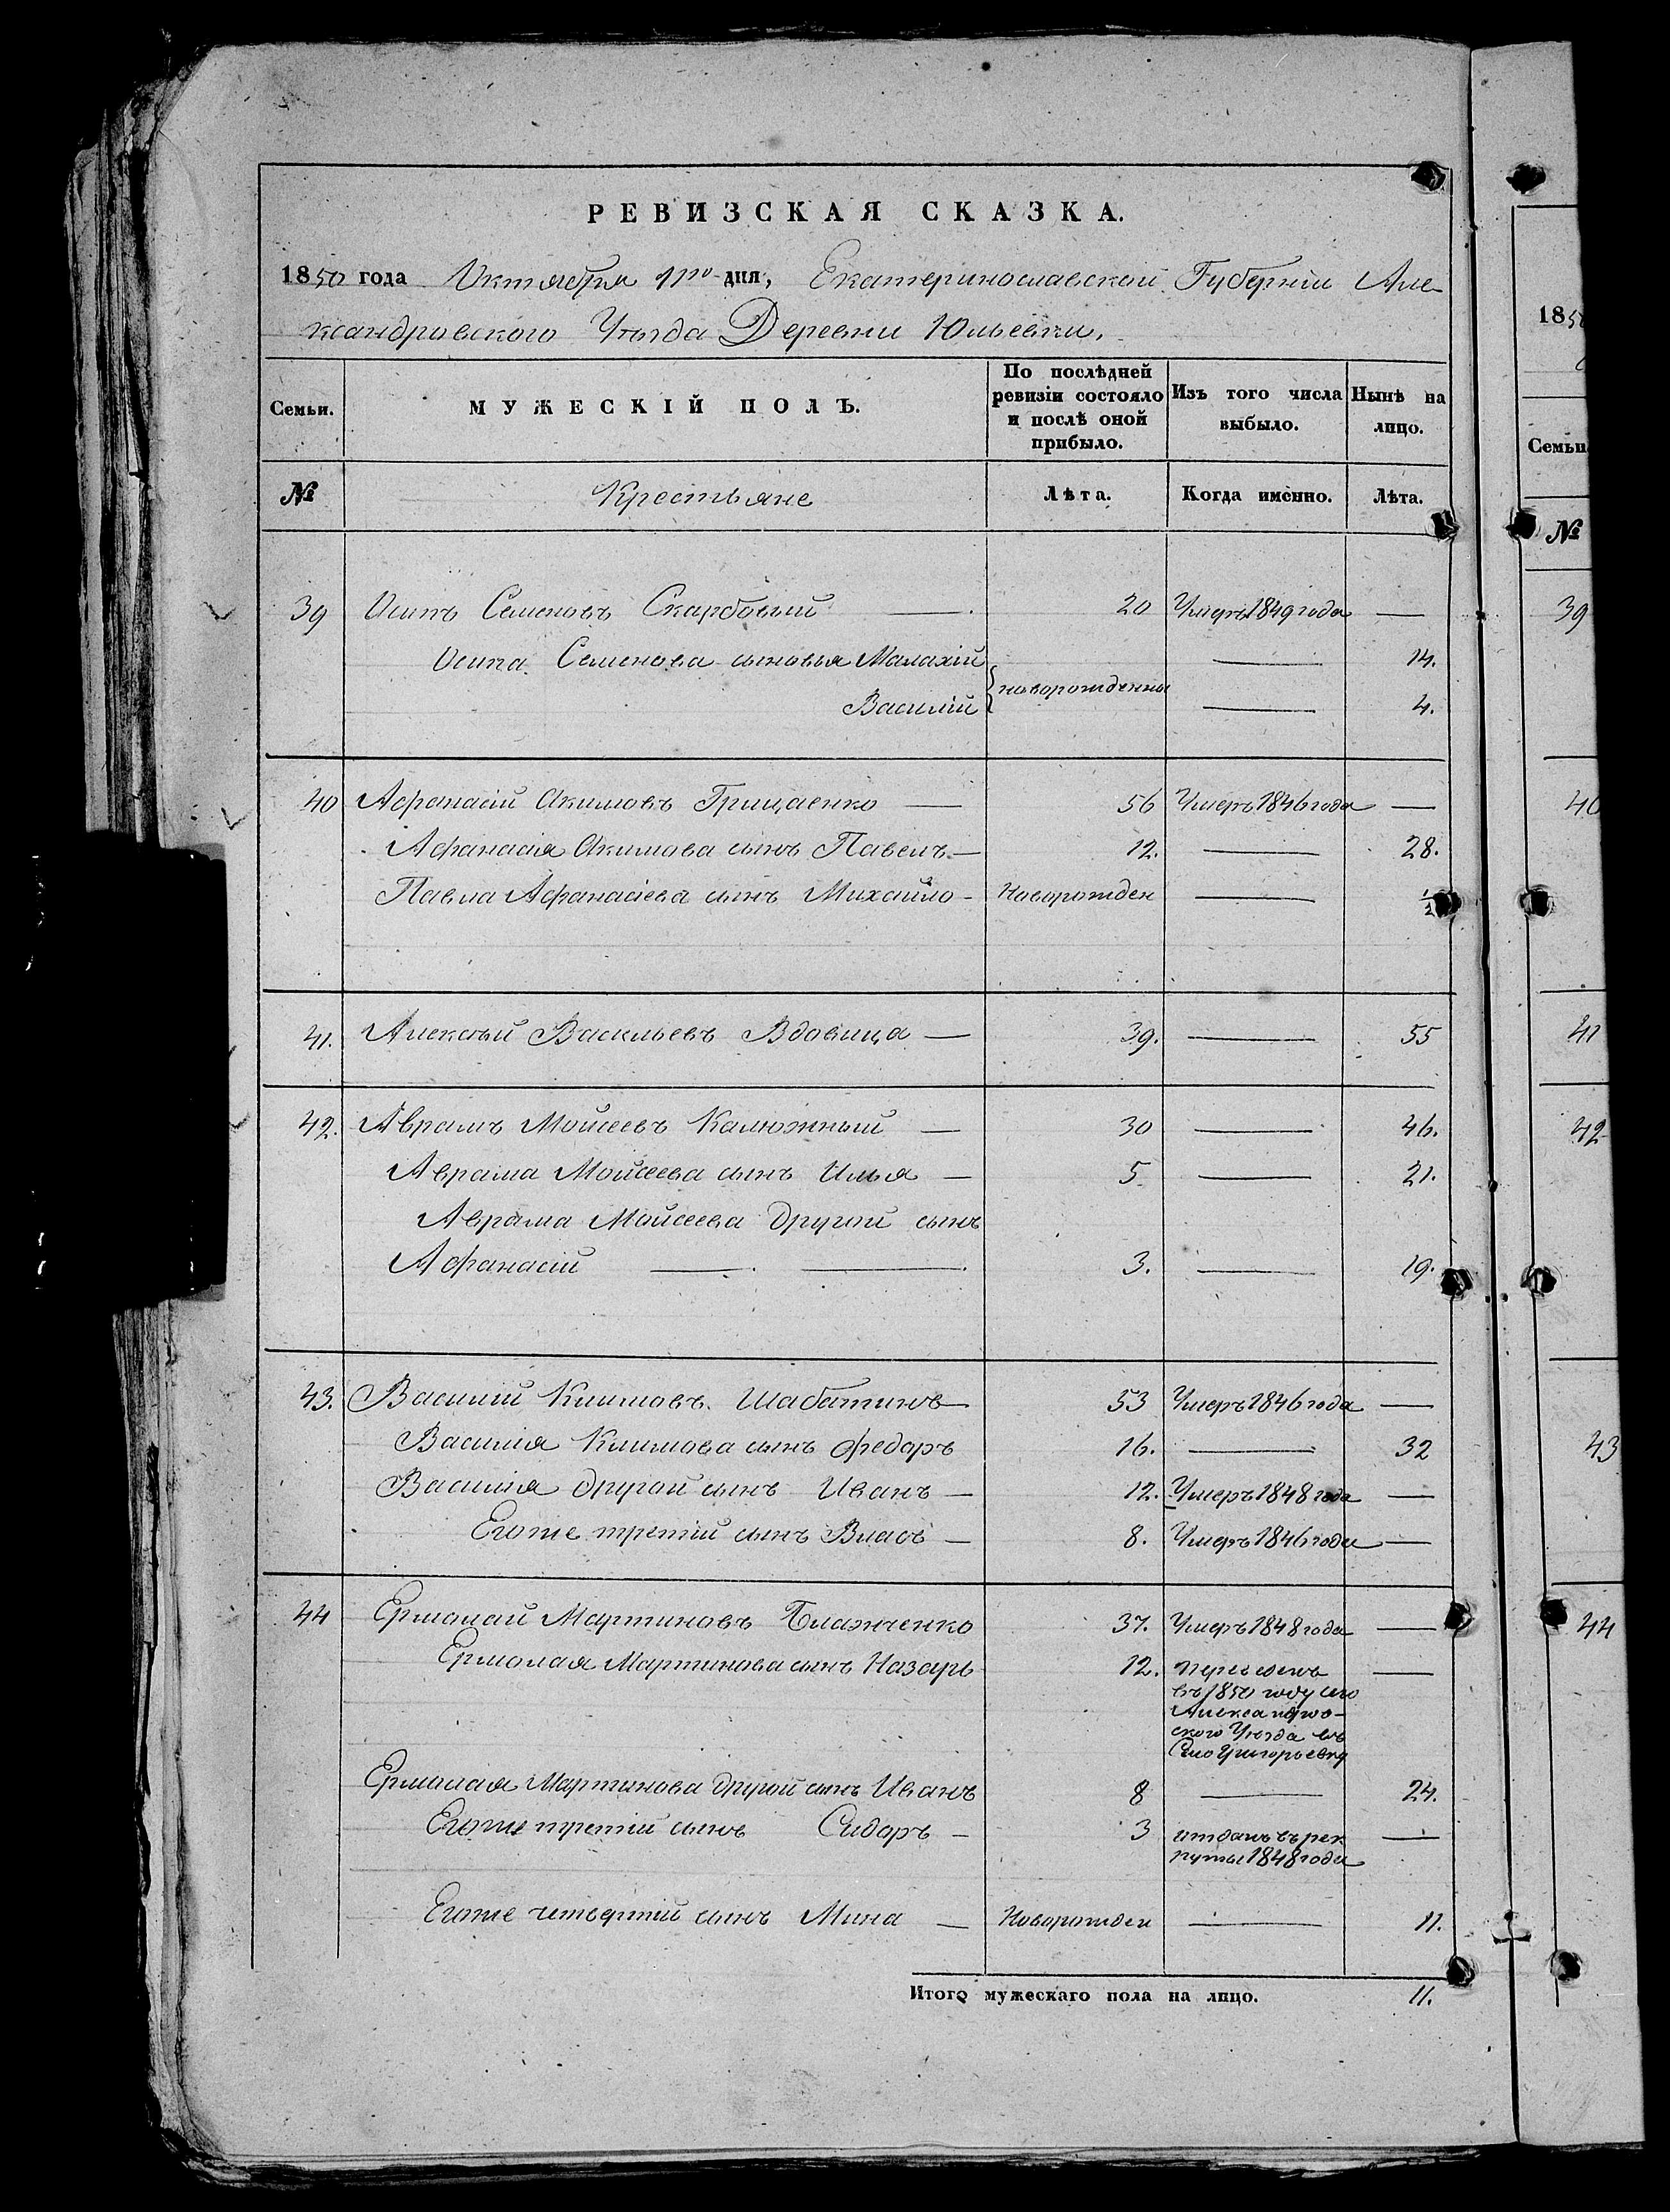 РЕВИЗСКАЯ СКАЗКА.
1850 года Октября 11го дня, Екатеринославской Губерніи Але-
ксандровского Уѣзда Деревни Юльевки.
Семьи.
МУЖЕСКІЙ ПОЛЪ.
По послѣдней ревизіи состояло и послѣ оной прибыло.
Изъ того числа выбыло.
Нынѣ на лицо.
№ Крестьяне Лѣта. Когда именно. Лѣта.
39 Осипъ Семеновъ Скарбовый — 20 Умеръ 1849 года —
Осипа Семенова сыновья Малахій новорожденны — 14.
Василій — 4.
40 Афанасій Акимовъ Грицаенко — 56 Умеръ 1846 года —
Афанасія Акимова сынъ Павелъ — 12. — 28.
Павла Афанасіева сынъ Михайло - Новорожден — 1/2
41. Алексѣй Васильевъ Вдовица — 39. — 55
42. Аврамъ Мойсеевъ Калюжный — 30 — 46.
Аврама Мойсеева сынъ Илья — 5 — 21.
Аврама Мойсеева другой сынъ
Афанасій — — 3. — 19.
43. Василій Климовъ Шабатинъ — 53 Умеръ 1846 года —
Василія Климова сынъ Федоръ 16. — 32
Василія другой сынъ Иванъ — 12. Умеръ 1848 года —
Егоже третій сынъ Власъ — 8. Умеръ 1846 года —
44 Ермолай Мартиновъ Блажченко 37. Умеръ 1848 года —
Ермолая Мартинова сынъ Назаръ 12. —
въ 1850 году
Александров-
ского Уѣзда въ
Село Григорьевку
Ермолая Мартинова другой сынъ Иванъ 8 — 24.
Егоже третій сынъ Сидоръ — 3 отданъ въ рек —
руты 1848 года
Егоже четвертій сынъ Мина — Новорожден — 11.
Итого мужескаго пола на лицо. 11.
185
Семьи
№
39
40
41
42
43
44